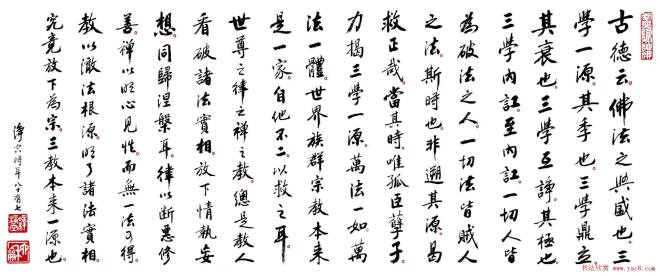 古德云佛法之興盛也三
學一源其季也三學鼎立
其衰也三學互諍其極也
三學內訌至內訌一切人皆
為破法之人一切法皆賊人
之法斯時也非遡其源曷
救正哉當其時唯孤臣孽子
力揭三學一源萬法一如萬
法一體世界族群宗教本來
是一家自他不二以救之耳
世尊之律之禪之教總是教人
看破諸法實相放下情執妄
想同歸涅槃耳律以斷惡修
善禪以明心見性而無一法可得
教以澈法根源明了諸法實相
究竟放下為宗三教本來一源也
淨空時年八十有七
书法欣赏 www.yac8.com